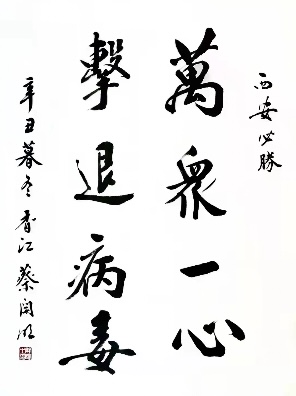 西安必勝
萬眾一心
擊退病毒
辛丑暮冬香江蔡開明